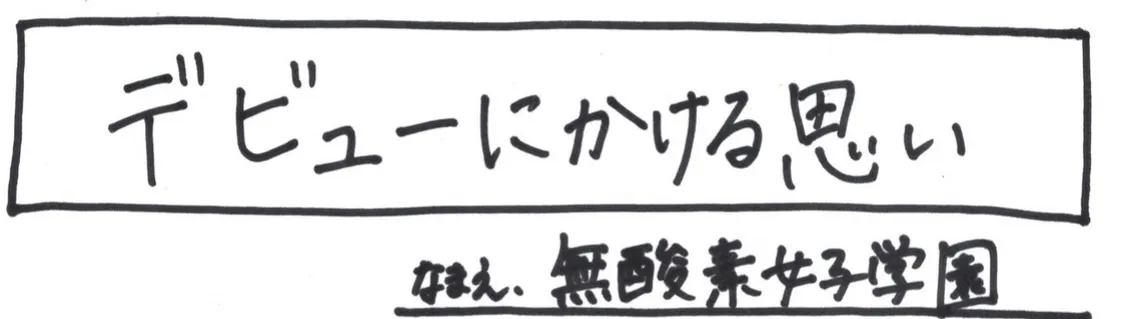 デビューにかける思い
なまえ、無酸素女子学園